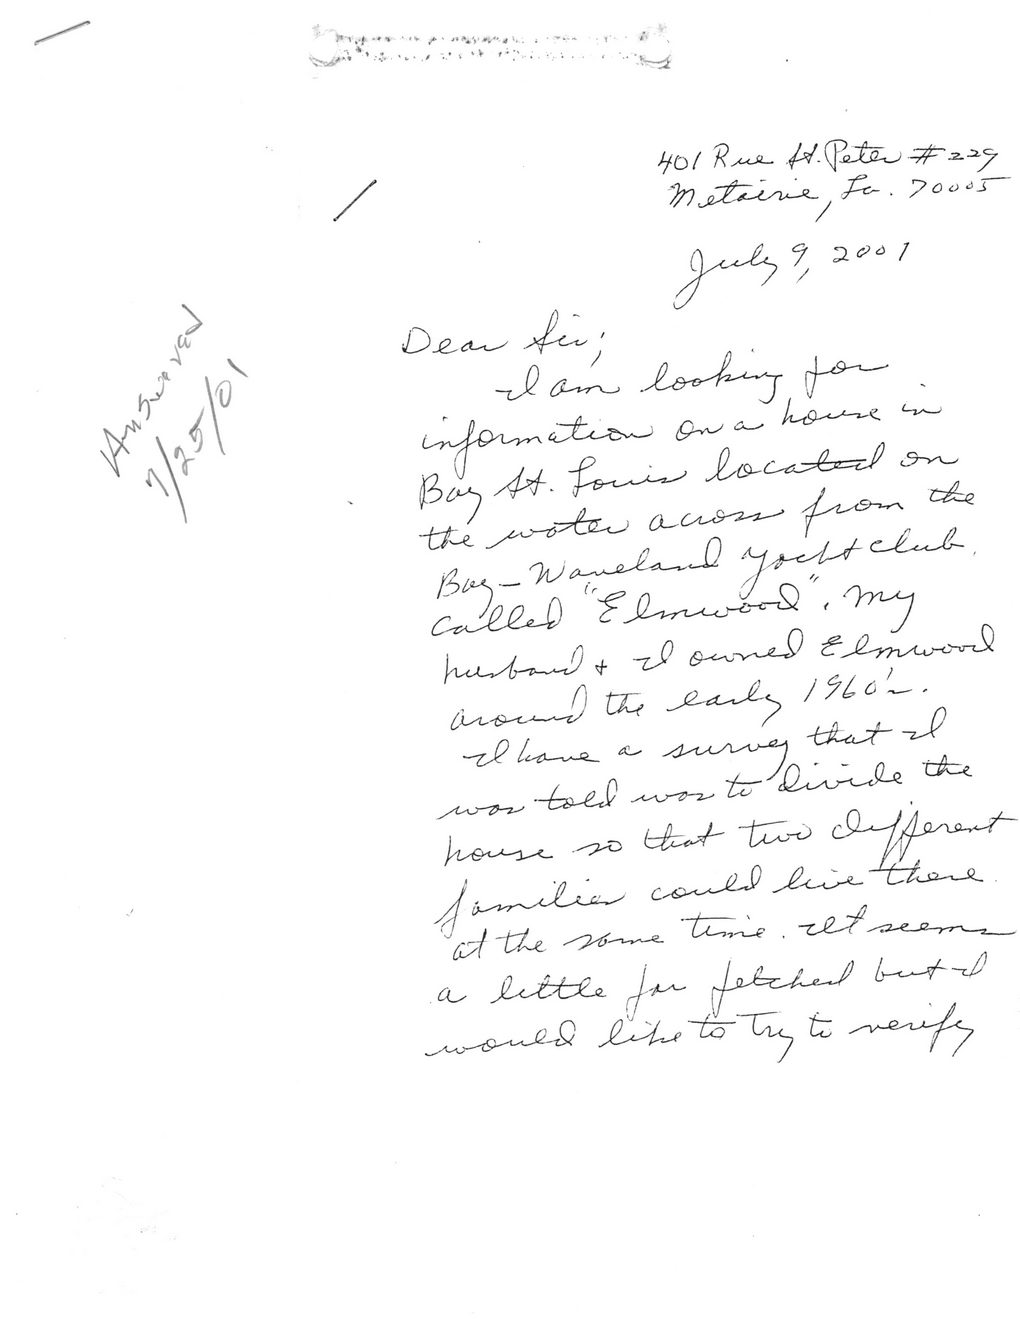 401 Rue St. Peter #229
Metairie, La. 70005
July 9, 2001
Answered
7/25/01
Dear Sir;
I am looking for
information on a house in
Bay St. Louis located on
the water across from the
Bay-Waveland Yacht club.
called "Elmwood". My
husband + I owned Elmwood
around the early 1960's.
I have a survey that I
was told was to divide the
house so that two different
families could live there
at the same time. It seems
a little far fetched but I
would like to try to verify